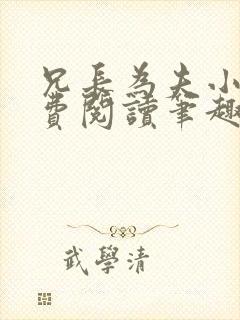 兄長為夫小
費閱讀筆趣
武學清